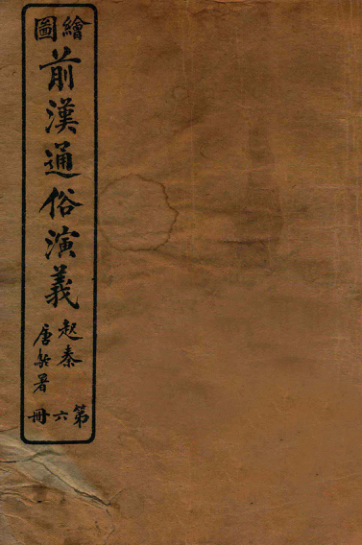 繪圖
前漢通俗演義
起秦
唐駝署
第六冊